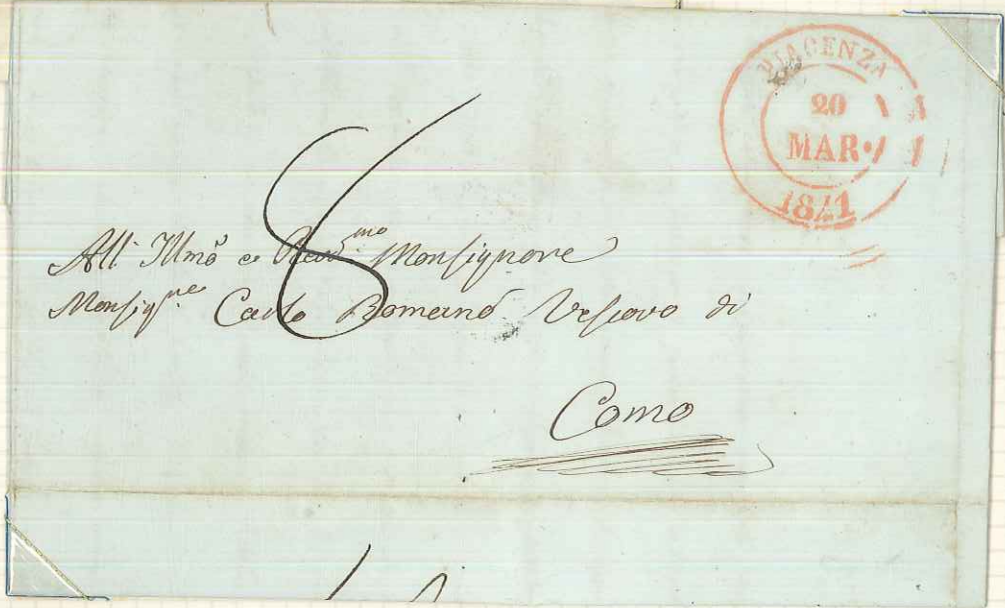 PIACENZA
20
MAR.
1841
6
All' Illmo e Revmo Monsignore
Monsigre Carlo Romanò Vescovo di
Como